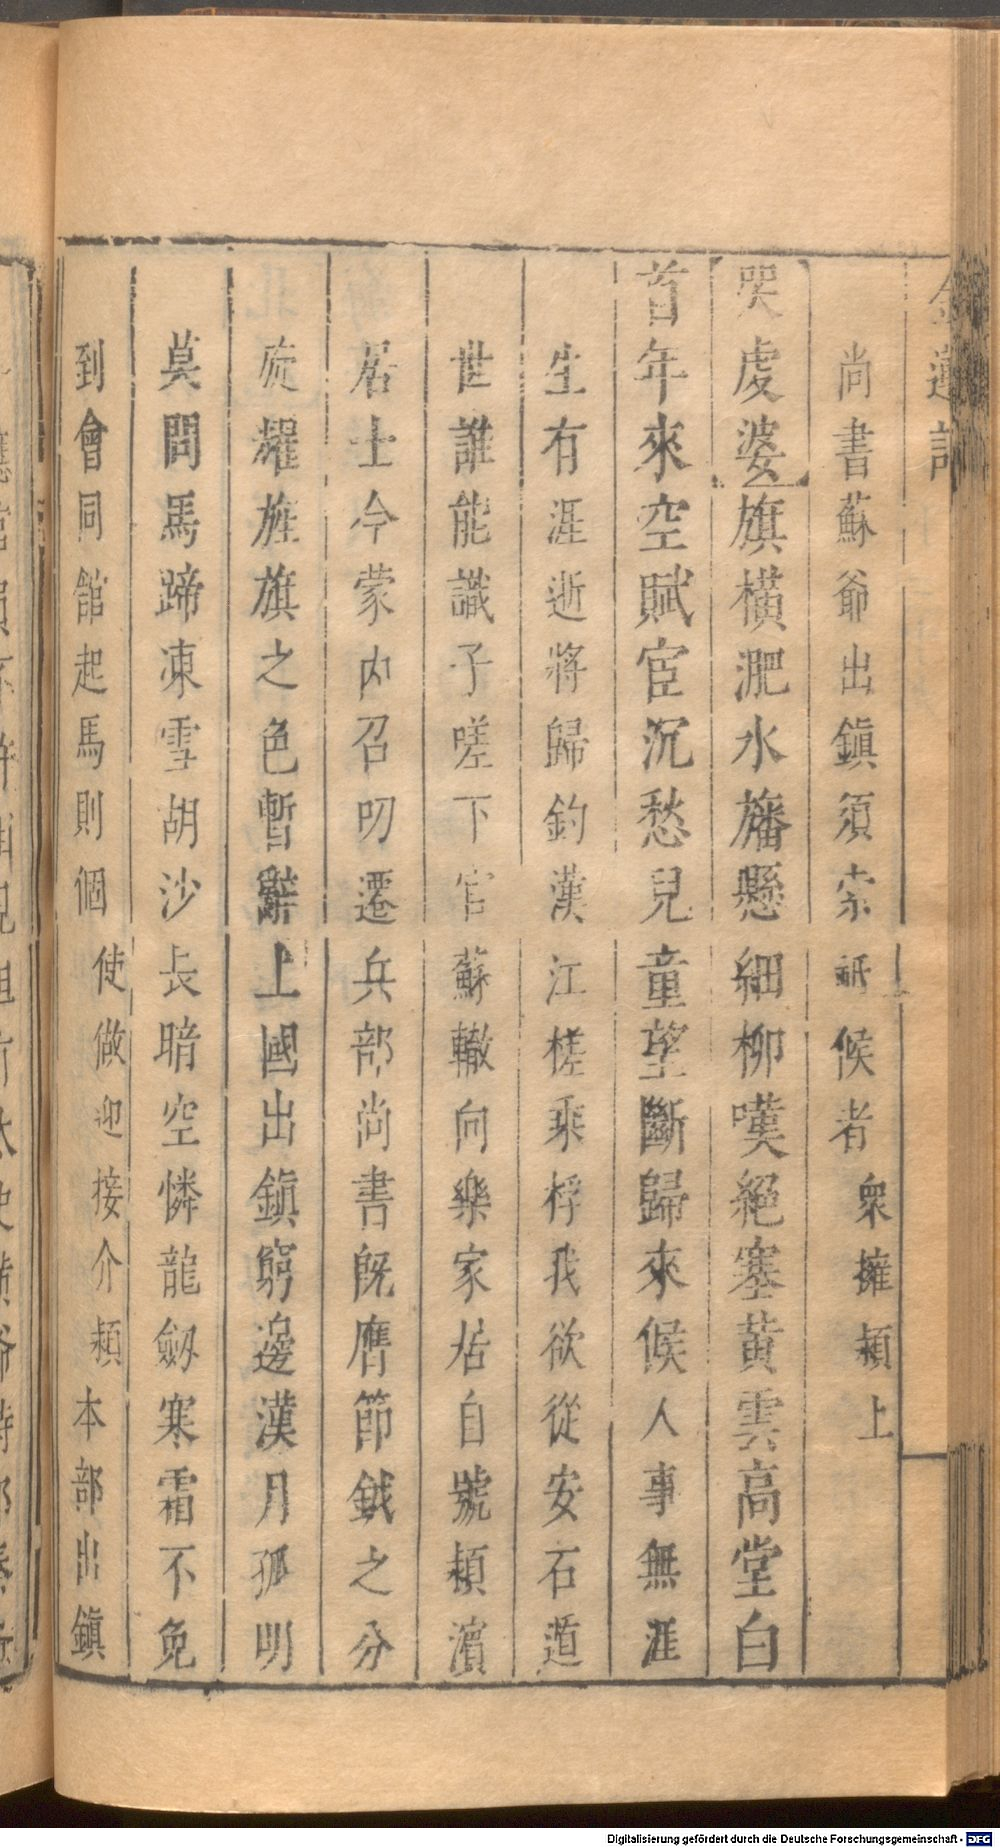 金蓮記
尚書蘇爺出鎮須索祇候者衆擁頴上
哭虔婆旗橫淝水旛懸細柳嘆絕塞黃雲高堂白
首年來空賦宦沉愁兒童望斷歸來候人事無涯
生有涯逝將歸釣漢江槎乘桴我欲從安石遁
世誰能識子嗟下官蘇轍向樂家居自號頴濵
居士今蒙内召叨遷兵部尚書旣膺節鉞之分
旋耀旌旗之色暫辭上國出鎮窮邊漢月孤明
莫問馬蹄凍雪胡沙長暗空憐龍劒寒霜不免
到會同館起馬則個使做迎接介頴本部出鎮
Digitalisierung gefördert durch die Deutsche Forschungsgemeinschaft - DFG